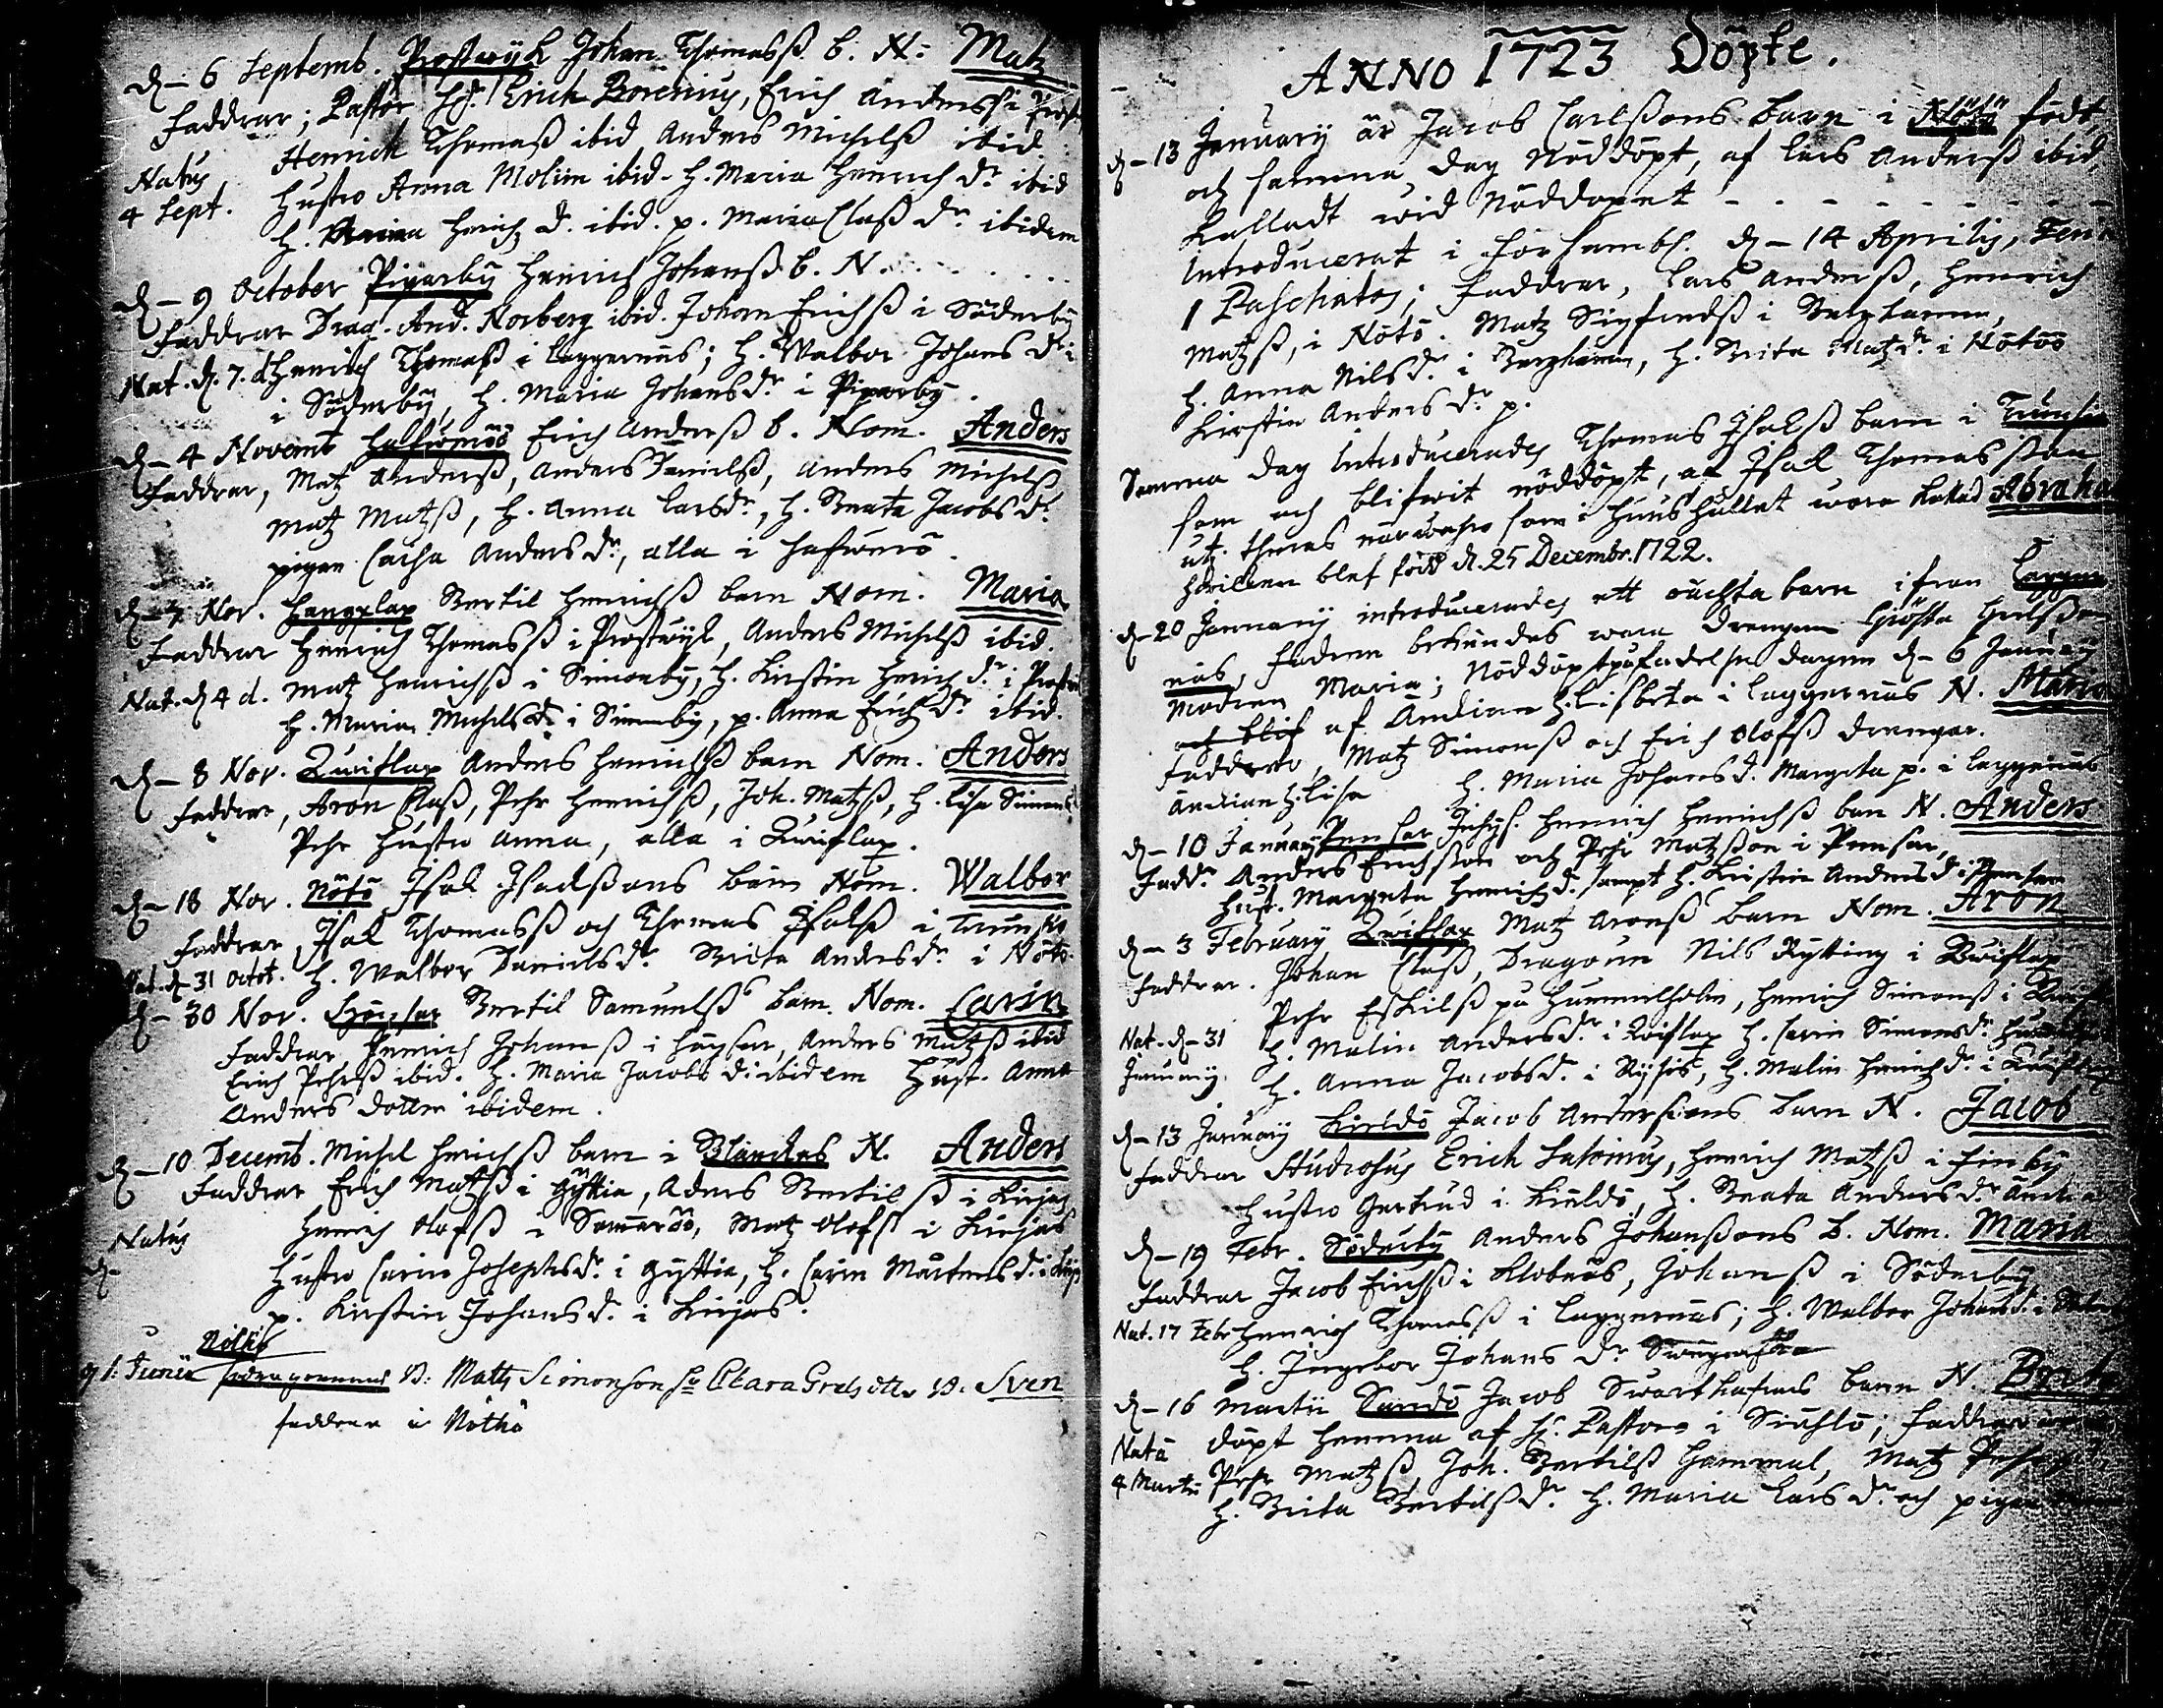 d. 6 Septemb. Prostwijk Johan Thomasß b. N. Matz
Faddrar; Pastor Hr. Erich Borenius, Erich Anderss i Prost
Henrich Thomaß ibid Anders Michelß ibid
Natus
4 Sept. Hustro Anna Molim ibid. H. Maria Henrich dr ibid
H. Henrich d. ibid. p. Maria Claß dr ibidem
d. 9 October Piparby Henrich Johanß b. N.
Faddrar Drag. And. Norberg ibid. Johan Erichß i Söderby
Nat. d. 7. d. Henrich Thomaß i Laggernäs; H. Walbor Johans dr
i Söderby, H. Maria Johansdr i Piparby.
d. 4 Novemb Erich Anderß b. Nom. Anders
Faddrar, Matz Anderß, Anders Danielß, Anders Michelß
Matz Matzß, H. Anna Larsdr, H. Beata Jacobs dr
pigan Caisa Anders dr, alla i
d. 7 Nov. Langxlax Bertil Henrichß barn Nom. Maria
Faddrar Henrich Thomasß i Prostwijk, Anders Michelß ibid.
Nat. d. 4 d. Matz Henrichß i Simonby, H. Kirstin Henrich dr i
H. Maria Michels dr i Simonby, p. Anna Erich dr ibid.
d. 8 Nov. Qwiflax Anders Henrichß barn Nom. Anders
Faddrar, Aron Claß, Pehr Henrichß, Joh. Matzß, H. Lisa Simons
Pehr Hustro Anna, alla i Qwiflax.
d. 18 Nov. Nötö Isak Isachßons barn Nom. Walbor
Faddrar, Isak Thomasß och Thomas Isakß i Trunsö
Nat. d. 31 Octob. H. Walbor Daniels dr Brita Anders dr i Nötö.
d. 30 Nov. Bertil Samuelß barn Nom. Carin
Faddrar, Henrich Johanß i, Anders Matzß ibid
Erich Pehrß ibid. H. Maria Jacobs d. ibidem Hust. Anna
Anders dotter ibidem.
d. 10 Decemb. Michel Henrichß barn i N. Anders
Faddrar Erich Matzß i Gyttia, Anders Bertilß i Kirjas
Natus Henrich Olofß i, Matz Olofß i Kirjas
d. Hustro Carin Josephsdr i Gyttia, H. Carin Mårtens d. i
p. Kirstin Johans d. i Kirjas.
Nötö
d 1. Junii B: Matts Simonson Hu Clara Grels dtr B: Sven
faddrar i Nöthö
ANNO 1723 Döpte.
d. 13 January är Jacob Carlßons barn i Nötö födt,
och samma dag Nöddöpt, af Lars Anderß ibid,
kalladt wid Nöddopet - - - - - - -
Introducerat i försambl. d. 14 Aprilis, Feria
1 Paschatos; Faddrar, Lars Anderß, Henrich
Matzß, i Nötö. Matz Sigfredß i Berghamn,
H. Anna Nils dr i Berghamn, H. Brita Matz dr i Nötö
Kirstin Anders dr p.
Samma dag Introducerades Thomas Isakß barn i Trunsö
som och blifwit nöddöpt, af Isak Thomasson
uti theras närwaro som i huushållet wore kallad Abraham
hwilken blef född d. 25 Decembr. 1722.
d. 20 January introducerades ett oächta barn ifrån Lagger
näs, Fadren bekändes wara Drengen Giösta
Modren Maria; Nöddöpt på födelse dagen d. 6 January
af Ändian H. Lisbeta i Laggernäs N. Maria
Faddrar, Matz Simonß och Erich Olofß drengar.
Ändian H. Lisa H. Maria Johans d. Margeta p. i Laggernäs
d. 10 January Pensar Henrich Henrichß barn N. Anders
Fadd. Anders Erichsson och Pehr Matzßon i Pensar,
Hust. Margeta Henrich d. sampt H. Kirstin Anders d. i Pensar
d. 3 February Qwiflax Matz Aronß barn Nom. Aron
Faddrar. Johan Claß, Dragoun Nils Rytting i Qwiflax
Pehr Eskilß på Hummelholm, Henrich Simonß i
Nat. d. 31 H. Malin Anders dr i Qwiflax H. Carin Simons dr
January. H. Anna Jacobs d. i, H. Malin Henrich dr i Qwiflax
d. 13 January Kieldö Jacob Anderssons barn N. Jacob
Faddrar Studiosus Erich Salonius, Henrich Matzß i Finby
Hustro Gertrud i Kieldö, H. Beata Anders dr
d. 19 Febr. Söderby Anders Johanßons b. Nom. Maria
Faddrar Jacob Erichß i Klobnäs, Johanß i Söderby
Nat. 17 Febr Henrich Thomasß i Laggernäs; H. Walbor Johans d. i
H. Ingebor Johans dr
d. 16 Martii Sandö Jacob Swarthafras barn N. Brita
Nata döpt hemma af H. Pastore i; Faddrar
4 Martii Pehr Matzß, Joh. Bertilß Gammal, Matz
H. Brita Bertilß dr. H. Maria Lars dr och pigan